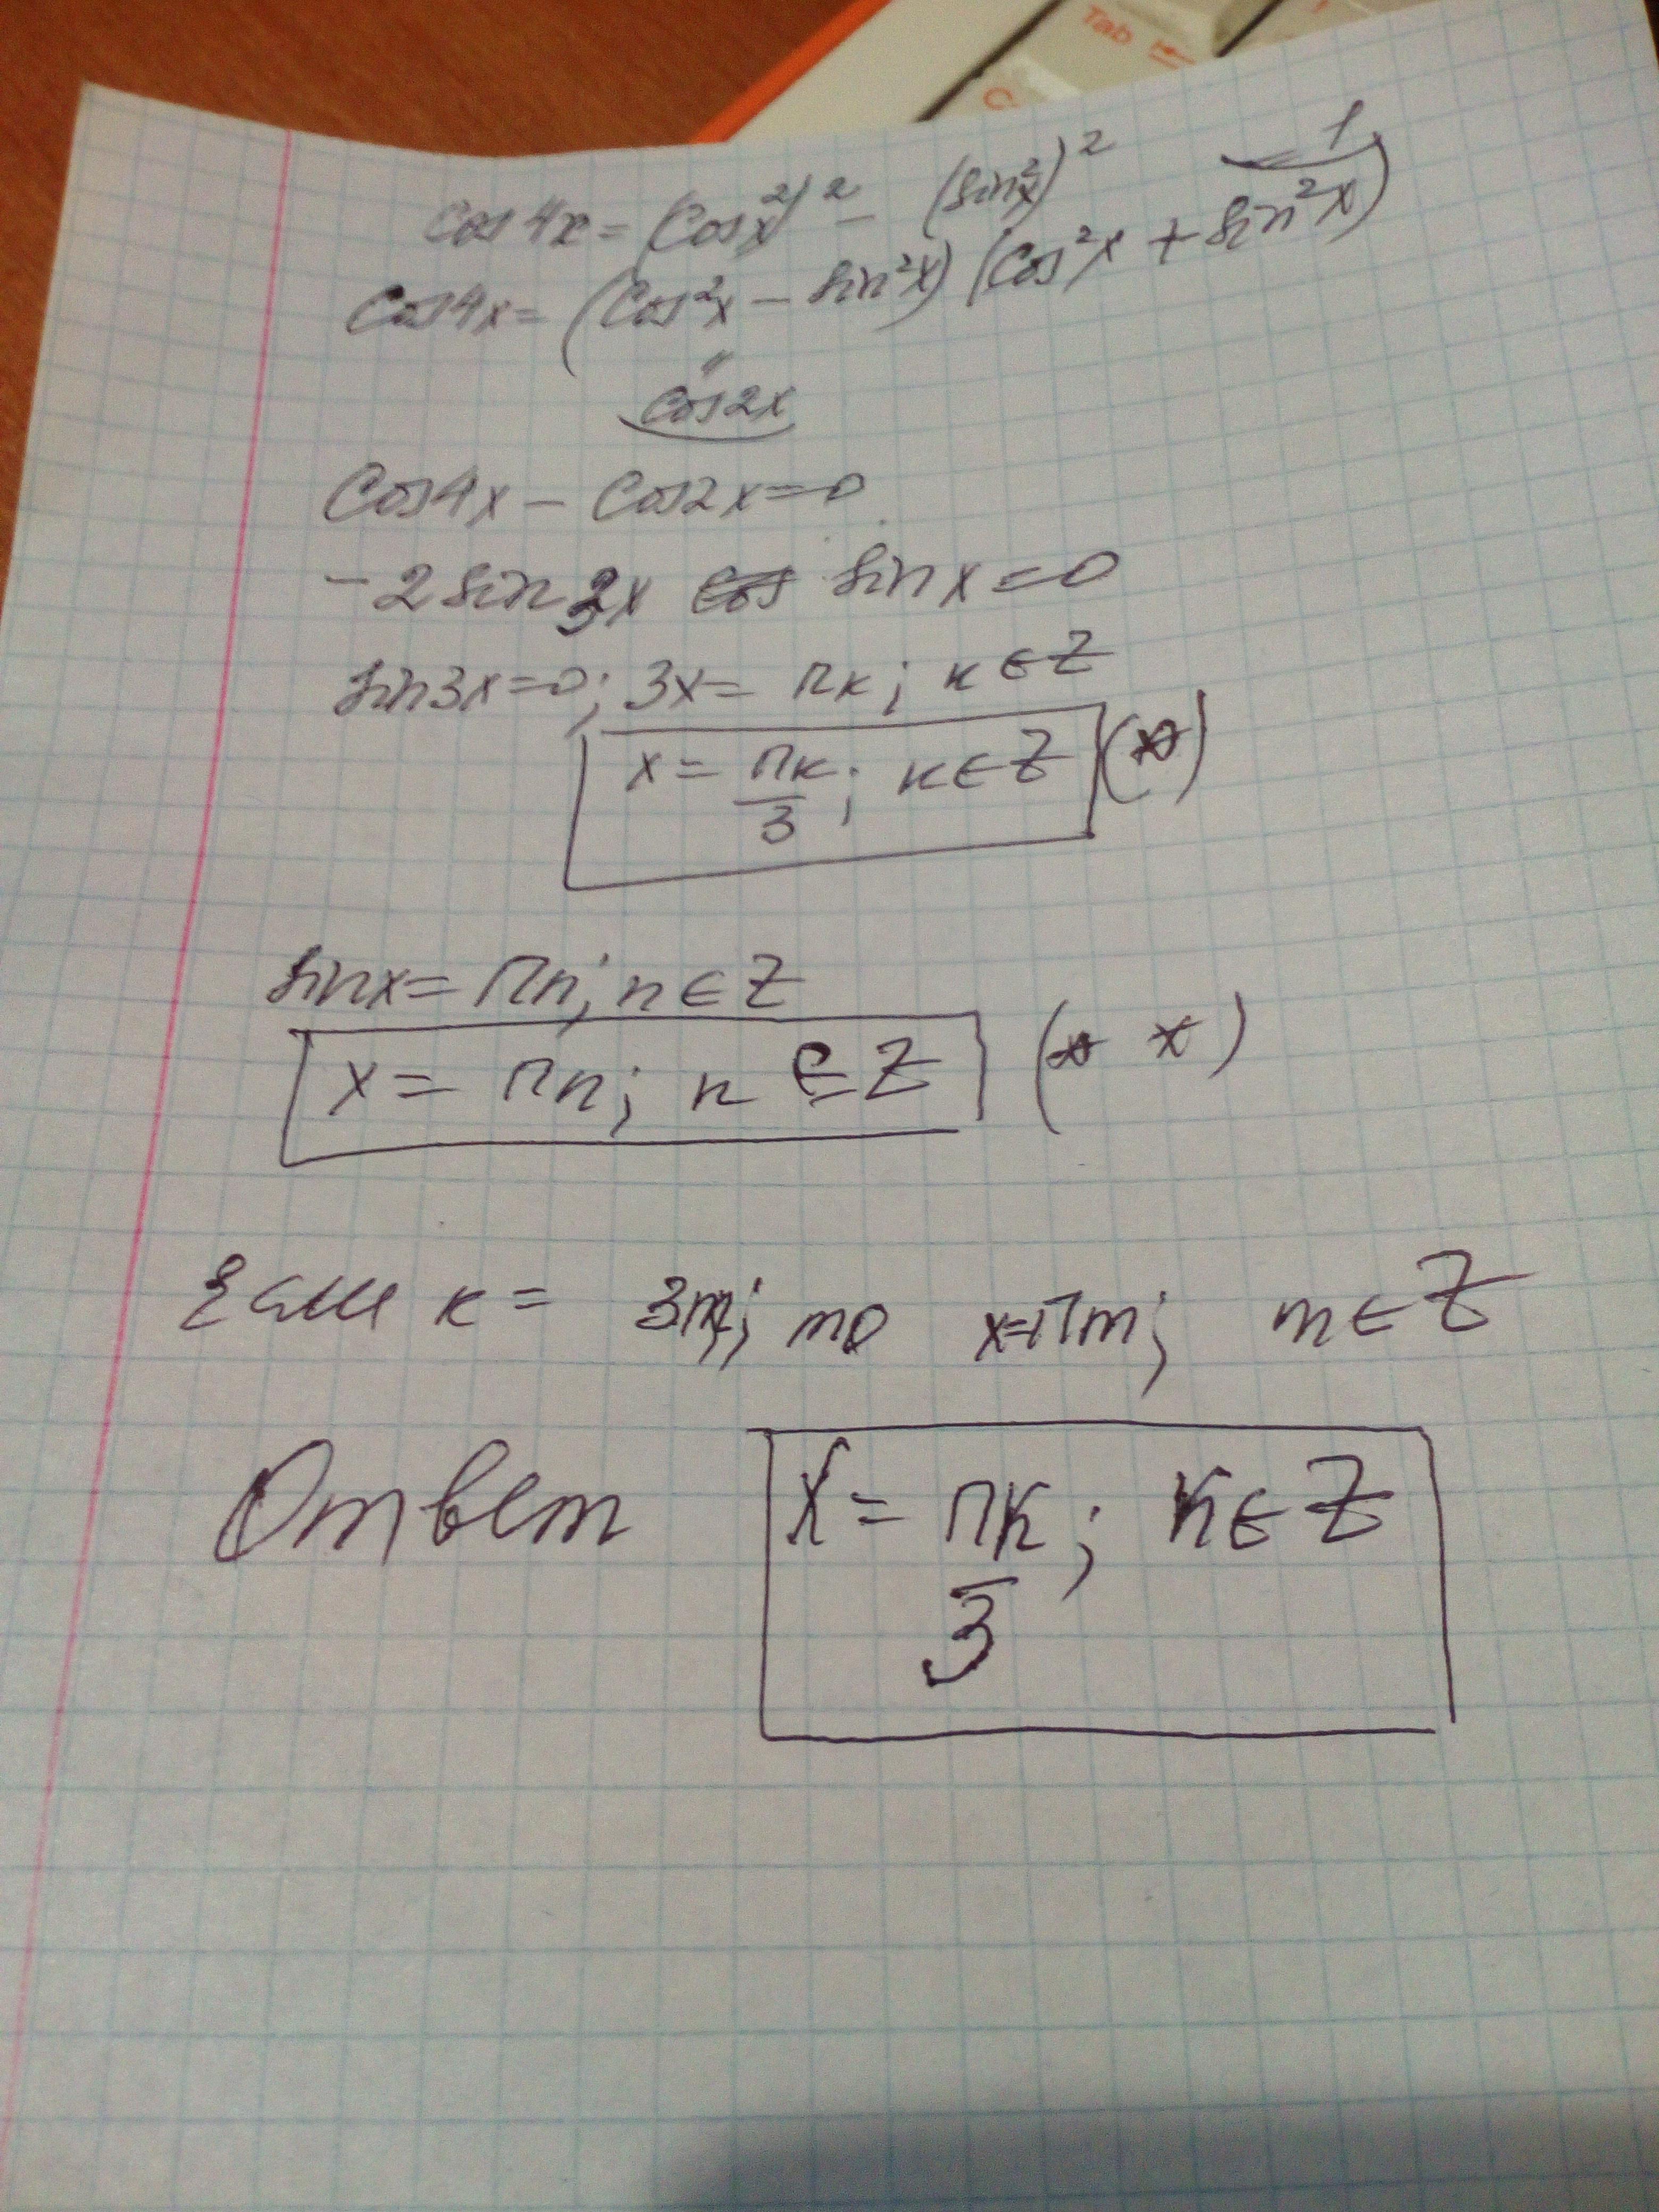 Tab
C
cos4x = (cos²x)² - (sin²x)²
1
cos4x = (cos²x - sin²x)(cos²x + sin²x)
"
cos2x
cos4x - cos2x = 0
-2 sin3x sinx = 0
sin3x = 0; 3x = πк; к ∈ Z
x = πк/3; к ∈ Z (*)
sinx = πn; n ∈ Z
x = πn; n ∈ Z (* *)
Если к = 3m; то x = πm; m ∈ Z
Ответ x = πк/3; к ∈ Z